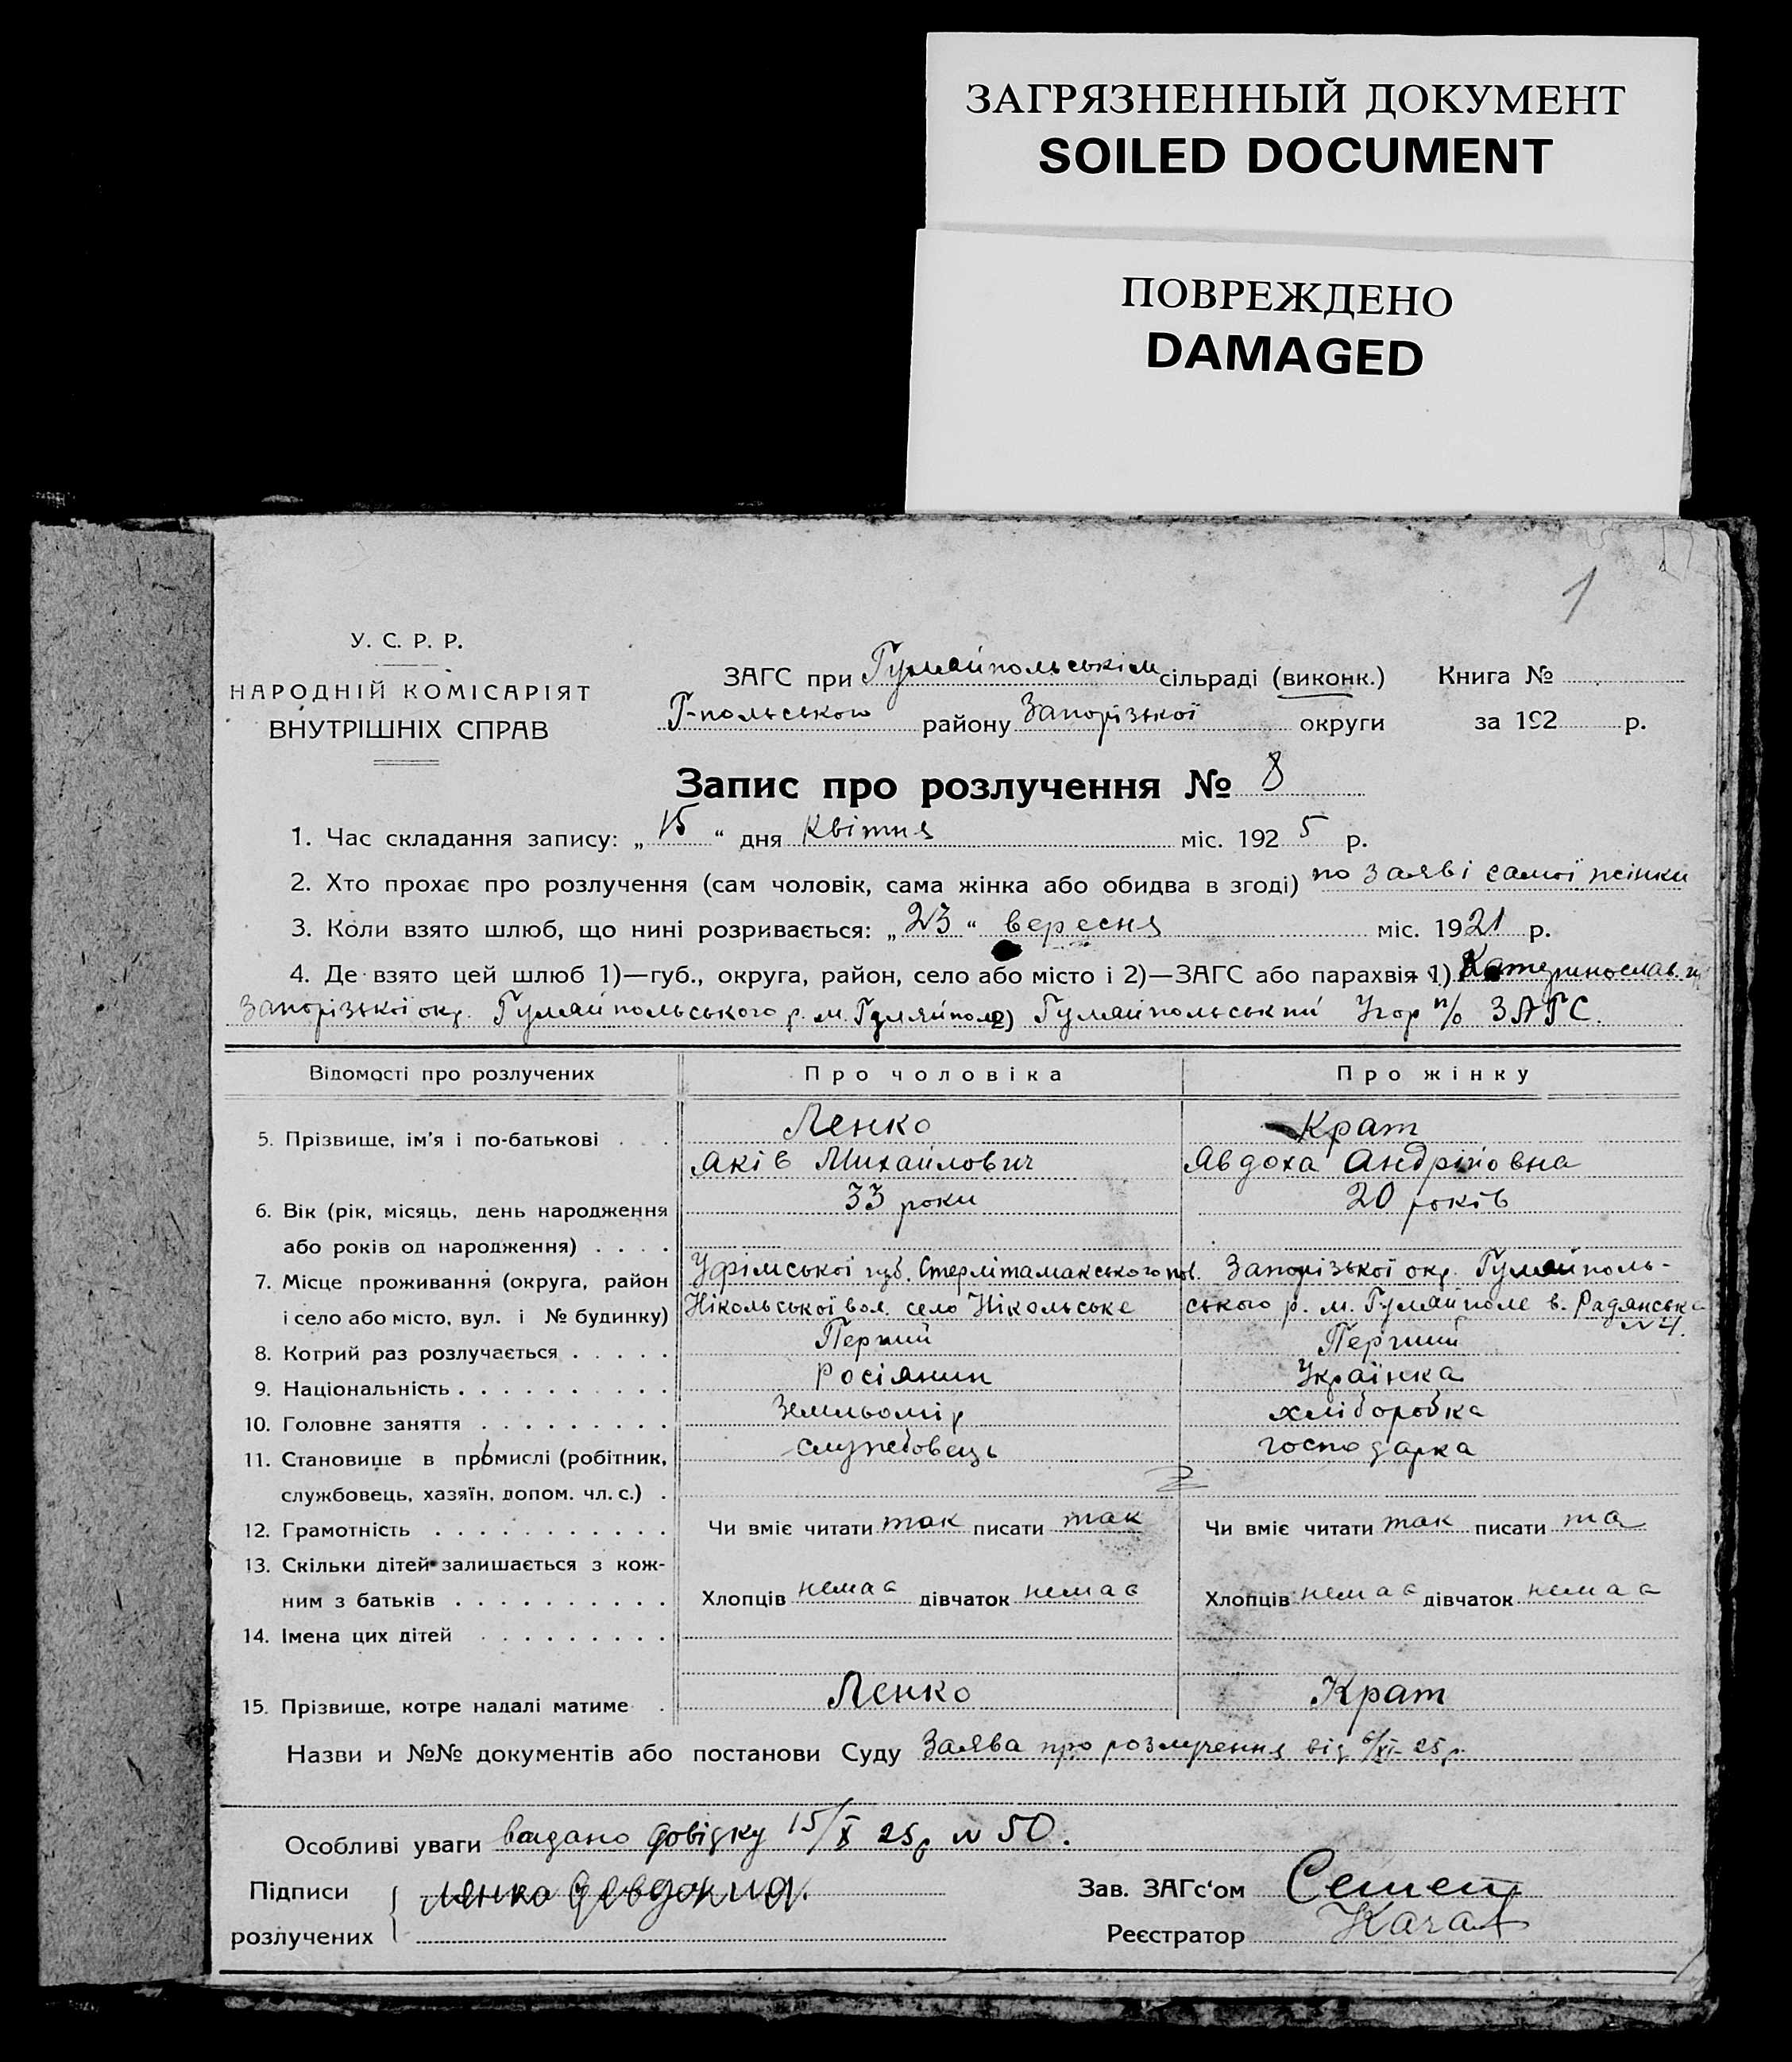 ЗАГРЯЗНЕННЫЙ ДОКУМЕНТ
SOILED DOCUMENT
ПОВРЕЖДЕНО
DAMAGED
1
У. С. Р. Р.
НАРОДНІЙ КОМІСАРІЯТ
ВНУТРІШНІХ СПРАВ
ЗАГС при Гуляйпольськім сільраді (виконк.) Книга №
Г-польського району Запорізької округи за 192 р.
Запис про розлучення № 8
1. Час складання запису: „15“ дня Квітня міс. 1925 р.
2. Хто прохає про розлучення (сам чоловік, сама жінка або обидва в згоді) по заяві самої жінки
3. Коли взято шлюб, що нині розривається: „23“ вересня міс. 1921 р.
4. Де взято цей шлюб 1)—губ., округа, район, село або місто і 2)—ЗАГС або парахвія 1) Катеринослав.
Запорізької окр. Гуляйпольського р. м. Гуляйполе 2) Гуляйпольський п/ ЗАГС.
Відомості про розлучених Про чоловіка Про жінку
5. Прізвище, ім'я і по-батькові . . Ленко Крат
Яків Михайлович Явдоха Андріївна
6. Вік (рік, місяць, день народження 33 роки 20 років
або років од народження) . . . .
7. Місце проживання (округа, район Уфімської губ. Стерлітамакського пов. Запорізької окр. Гуляйполь-
і село або місто, вул. і № будинку) Нікольської вол. село Нікольське ського р. м. Гуляйполе в. Радянська
№ 4.
8. Котрий раз розлучається . . . . . Перший Перший
9. Національність . . . . . . . . . . Росіянин Українка
10. Головне заняття . . . . . . . . . Земльомір хліборобка
11. Становище в промислі (робітник, службовець господарка
службовець, хазяїн, допом. чл. с.) .
12. Грамотність . . . . . . . . . . . Чи вміє читати так писати так Чи вміє читати так писати та
13. Скільки дітей залишається з кож-
ним з батьків . . . . . . . . . . Хлопців немає дівчаток немає Хлопців немає дівчаток немає
14. Імена цих дітей . . . . . . . . .
15. Прізвище, котре надалі матиме . Ленко Крат
Назви и №№ документів або постанови Суду Заява про розлучення від 6/XI-25р.
Особливі уваги видано довідку 15/X 25р № 50.
Підписи Ленко Явдокия. Зав. ЗАГс'ом
розлучених Реєстратор